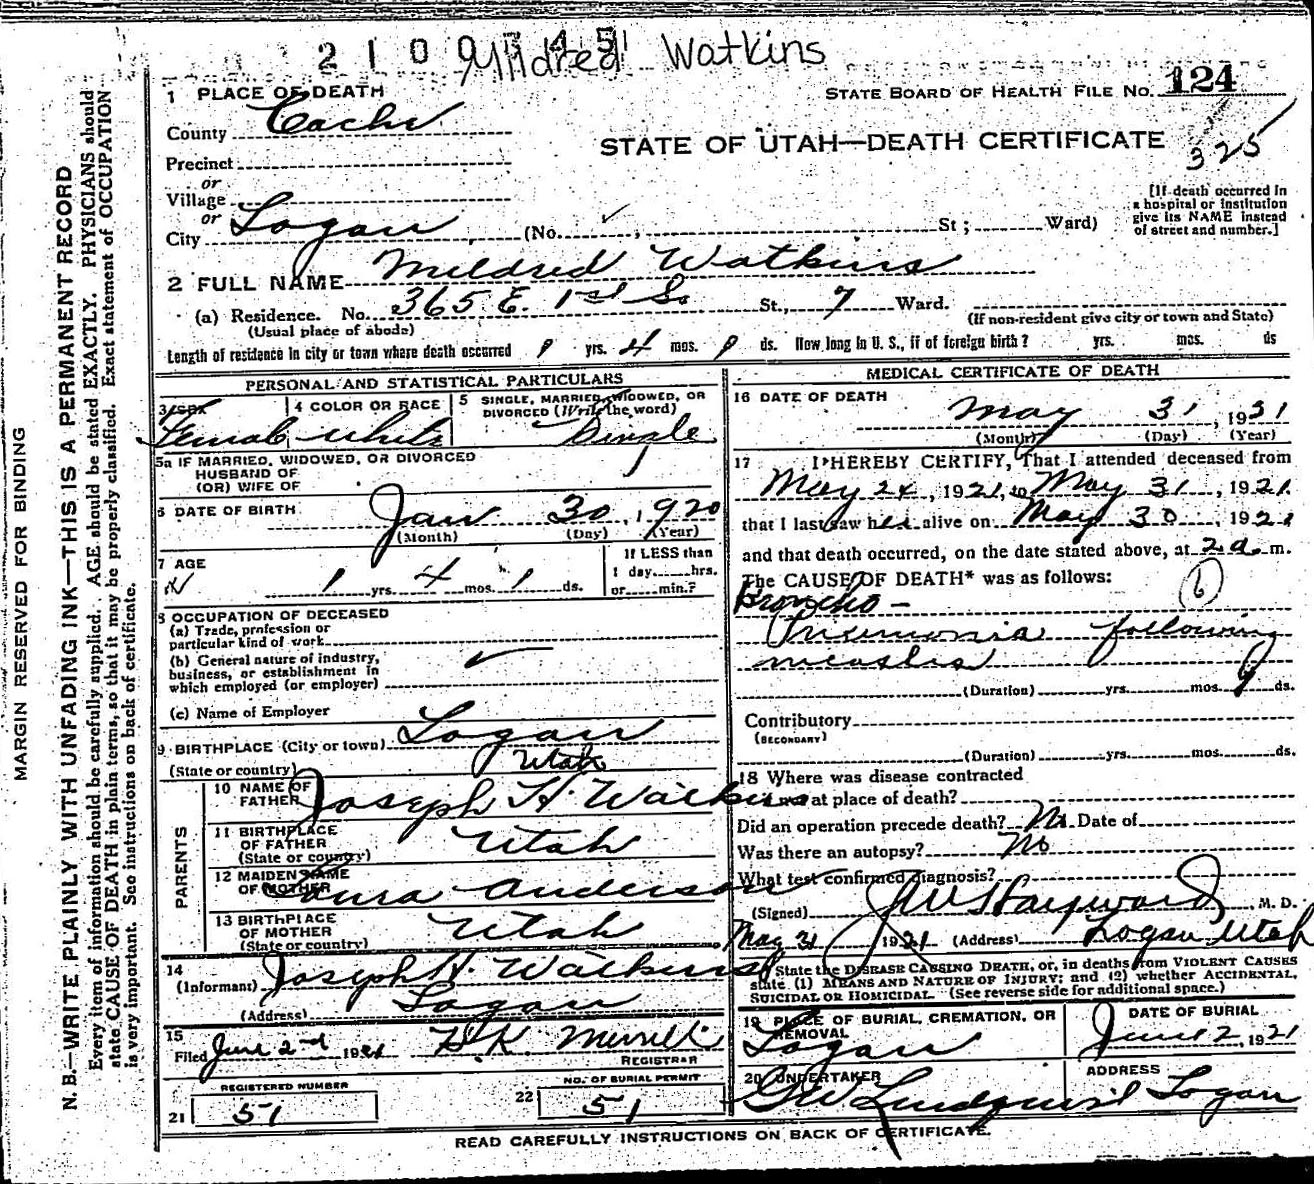 2 1 0 0 3 4 5
Mildred Watkins
1 PLACE OF DEATH
STATE BOARD OF HEALTH FILE NO. 124
County Cache
STATE OF UTAH—DEATH CERTIFICATE
325
Precinct
or
Village
or
City Logan (No. , St; Ward)
[If death occurred in
a hospital or institution
give its NAME instead
of street and number.]
2 FULL NAME Mildred Watkins
(a) Residence. No. 365 E. 1st So St., 7 Ward.
(Usual place of abode)
(If non-resident give city or town and State)
Length of residence in city or town where death occurred 1 yrs. 4 mos. 1 ds. How long in U. S., if of foreign birth? yrs. mos. ds
PERSONAL AND STATISTICAL PARTICULARS
3 SEX 4 COLOR OR RACE 5 SINGLE, MARRIED, WIDOWED, OR
DIVORCED (Write the word)
Female White Single
5a IF MARRIED, WIDOWED, OR DIVORCED
HUSBAND OF
(OR) WIFE OF
6 DATE OF BIRTH Jan 30, 1920
(Month) (Day) (Year)
7 AGE
1 yrs. 4 mos. 1 ds.
If LESS than
1 day hrs.
or min.?
8 OCCUPATION OF DECEASED
(a) Trade, profession or
particular kind of work
(b) General nature of industry,
business, or establishment in
which employed (or employer)
(c) Name of Employer
9 BIRTHPLACE (City or town) Logan
(State or country) Utah
PARENTS
10 NAME OF
FATHER Joseph H. Watkins
11 BIRTHPLACE
OF FATHER
(State or country) Utah
12 MAIDEN NAME
OF MOTHER Laura Anderson
13 BIRTHPLACE
OF MOTHER
(State or country) Utah
14
(Informant) Joseph H. Watkins
(Address) Logan
15
Filed June 2nd 1921 H.K. Merrill
REGISTRAR
REGISTERED NUMBER
21 51
NO. OF BURIAL PERMIT
22 51
MEDICAL CERTIFICATE OF DEATH
16 DATE OF DEATH
May 31, 1921
(Month) (Day) (Year)
17 I HEREBY CERTIFY, That I attended deceased from
May 24, 1921, to May 31, 1921
that I last saw her alive on May 30, 1921
and that death occurred, on the date stated above, at 2 a. m.
The CAUSE OF DEATH* was as follows:
Broncho- 6
Pneumonia following
measles
(Duration) yrs. mos. 9 ds.
Contributory
(SECONDARY)
(Duration) yrs. mos. ds.
18 Where was disease contracted
if not at place of death?
Did an operation precede death? No Date of
Was there an autopsy? No
What test confirmed diagnosis?
(Signed) J W Hayward, M. D.
May 31 1921 (Address) Logan Utah
State the DISEASE CAUSING DEATH, or, in deaths from VIOLENT CAUSES
state (1) MEANS AND NATURE OF INJURY; and (2) whether ACCIDENTAL,
SUICIDAL OR HOMICIDAL. (See reverse side for additional space.)
19 PLACE OF BURIAL, CREMATION, OR
REMOVAL
Logan
DATE OF BURIAL
June 2, 1921
20 UNDERTAKER
G W Lindquist
ADDRESS
Logan
READ CAREFULLY INSTRUCTIONS ON BACK OF CERTIFICATE.
MARGIN RESERVED FOR BINDING
N. B.—WRITE PLAINLY WITH UNFADING INK—THIS IS A PERMANENT RECORD
Every item of information should be carefully supplied. AGE should be stated EXACTLY. PHYSICIANS should
state CAUSE OF DEATH in plain terms, so that it may be properly classified. Exact statement of OCCUPATION
is very important. See instructions on back of certificate.